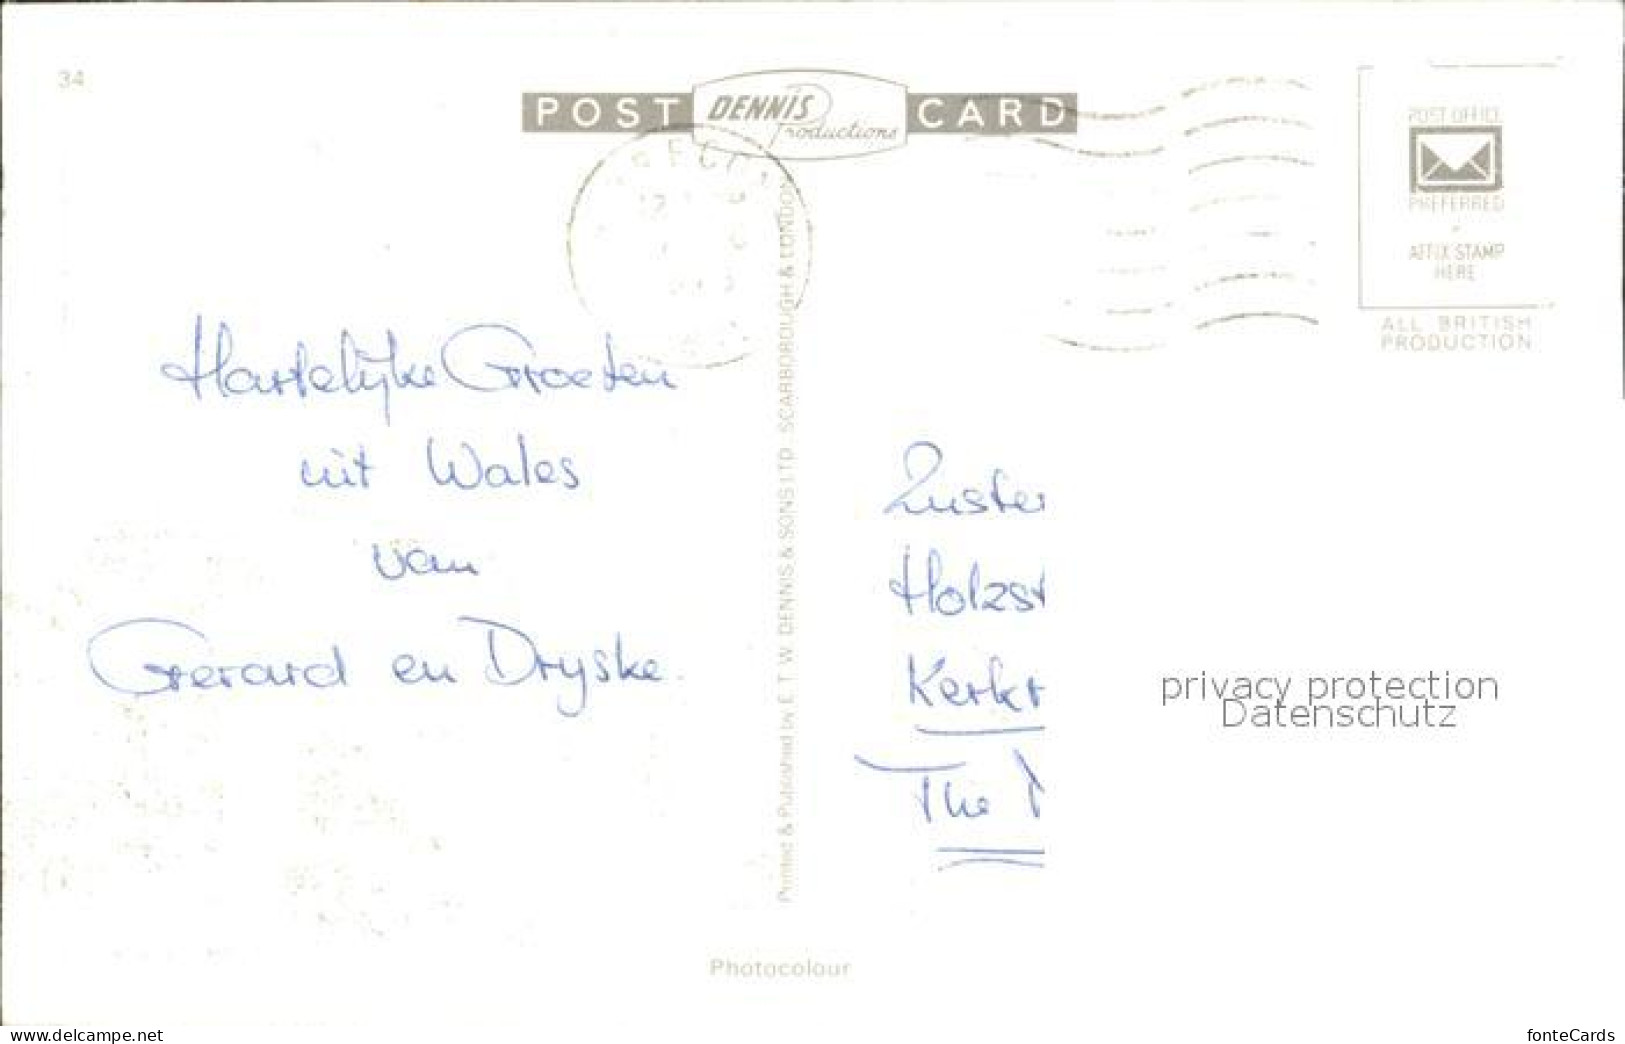 34
POST DENNIS Productions CARD
POST OFFICE
PREFERRED
AFFIX STAMP
HERE
ALL BRITISH
PRODUCTION
Hartelyke Groeten
uit Wales
van
Gerard en Dryske.
Printed & Published by E. T. W. DENNIS & SONS LTD. SCARBOROUGH & LONDON
Zuster
Holzst
Kerkr
The
privacy protection
Datenschutz
Photocolour
www.delcampe.net
fonteCards